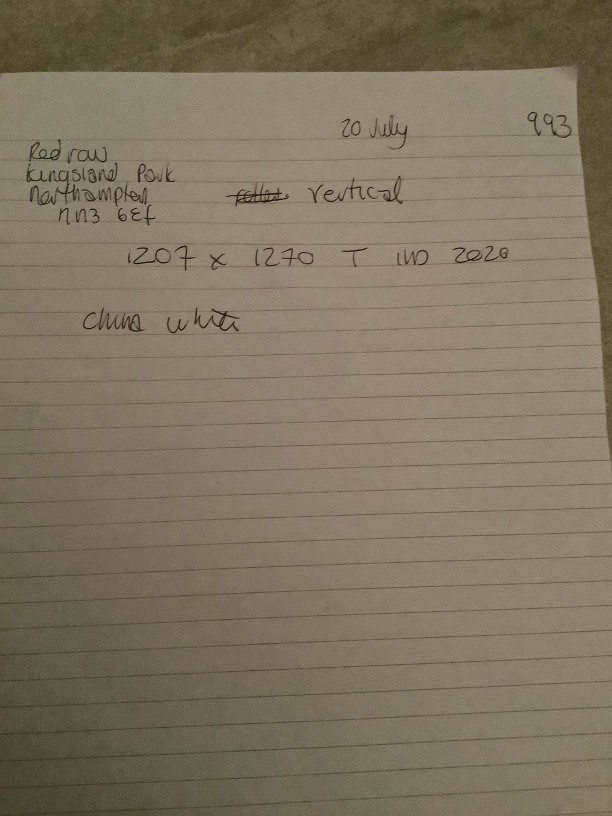 20 July 993
Redraw
Kingsland Park
Northampton
nn3 6Ef
vertical
1207 x 1270 T IND 2020
China white